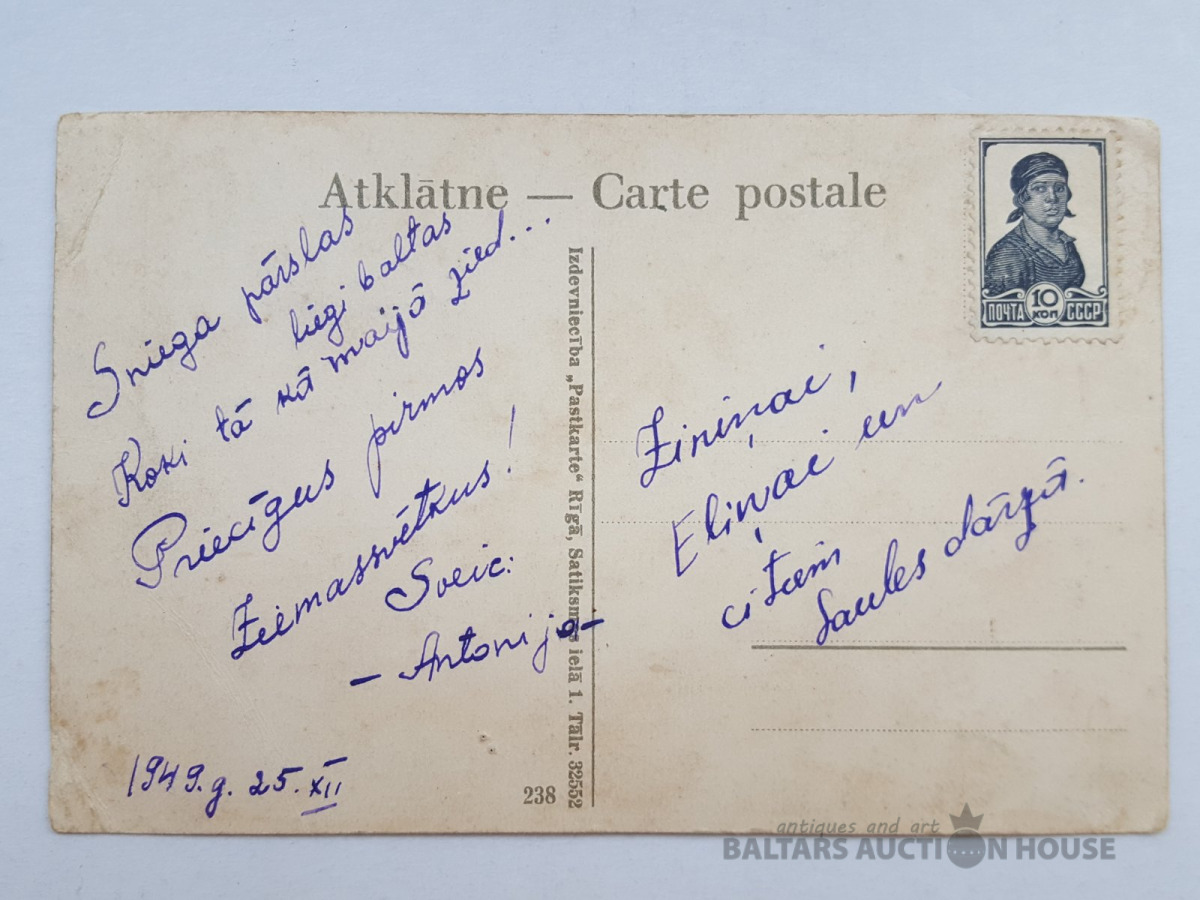 Atklātne — Carte postale
Sniega pārslas
liegi baltas
Koki tā kā maijā zied...
Priecīgus pirmos
Ziemassvētkus!
Sveic:
– Antonija –
1949.g. 25.XII
238
Izdevniecība „Pastkarte“ Rīgā, Satiksmes ielā 1. Tālr. 32552
10
КОП
ПОЧТА СССР
Ziniņai,
Eliņai un
citām
Saules dārzā.
antiques and art
BALTARS AUCTION HOUSE